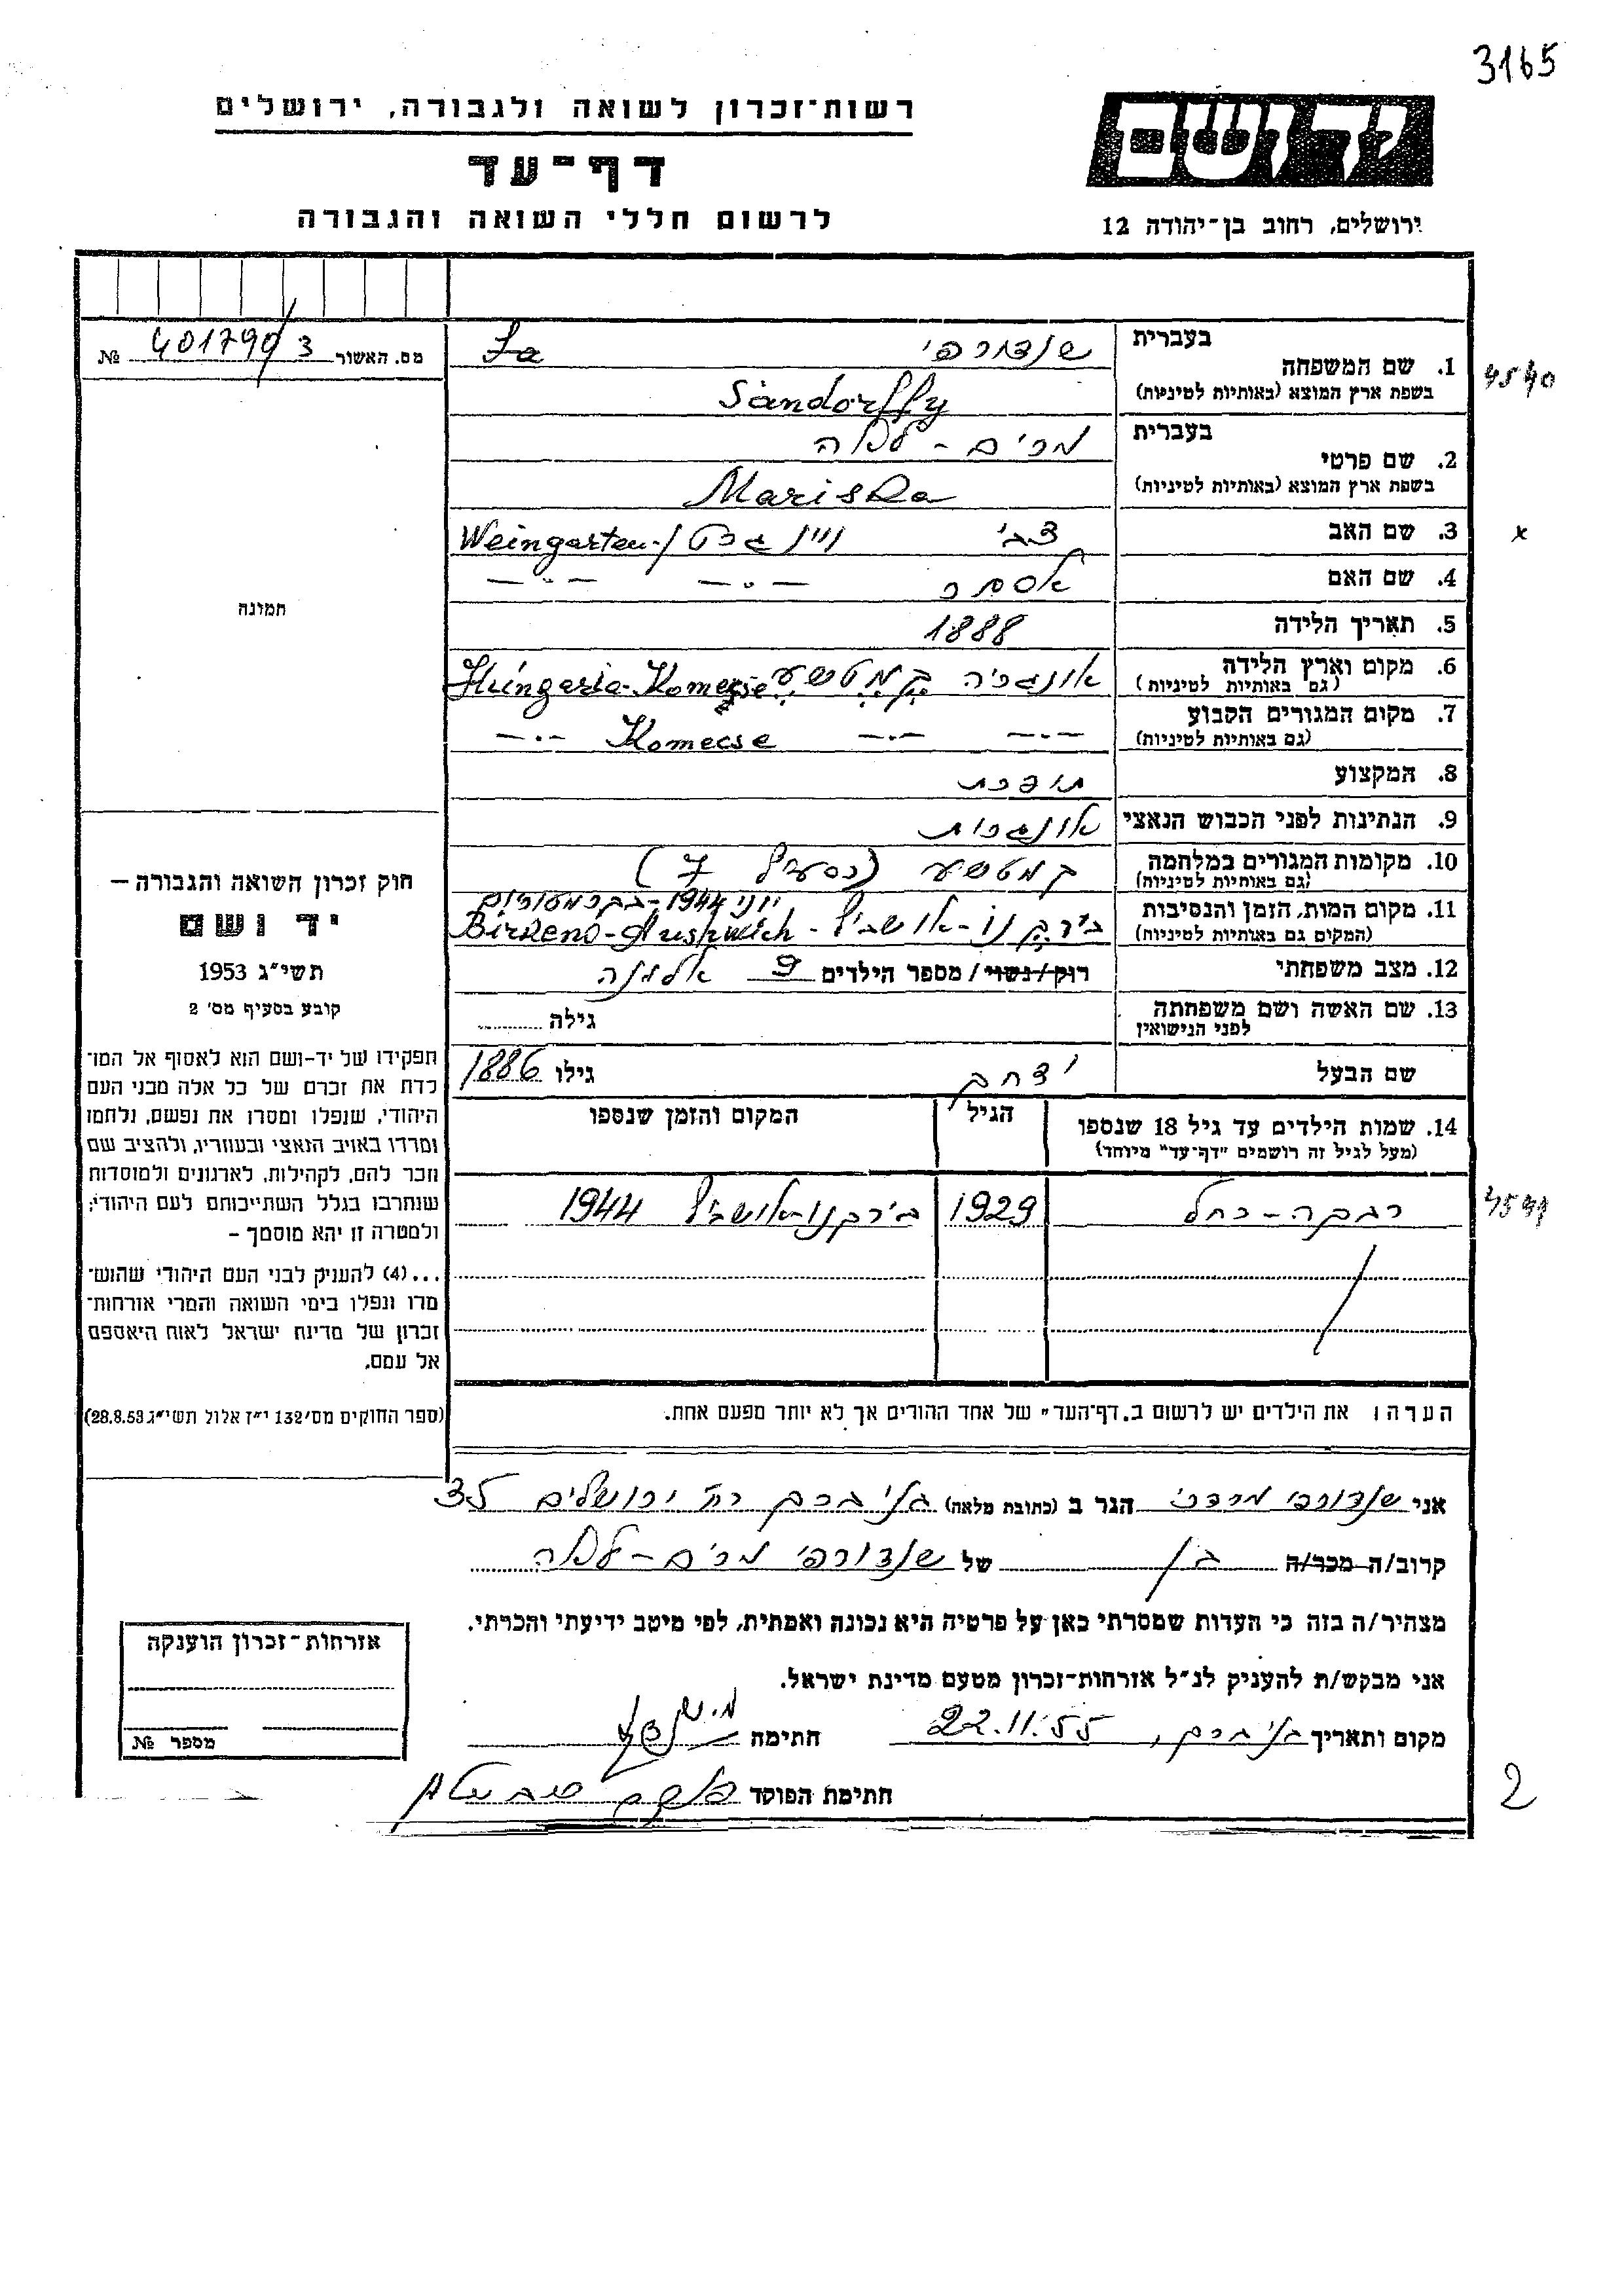 3165
רשות־זכרון לשואה ולגבורה, ירושלים
דף־עד
לרשום חללי השואה והגבורה
ידושם
ירושלים, רחוב בן־יהודה 12
מס. האשור 401790/3 №
תמונה
חוק זכרון השואה והגבורה —
יד ושם
תשי״ג 1953
קובע בסעיף מס׳ 2
תפקידו של יד-ושם הוא לאסוף אל המו־
לדת את זכרם של כל אלה מבני העם
היהודי, שנפלו ומסרו את נפשם, נלחמו
ומרדו באויב הנאצי ובעוזריו, ולהציב שם
וזכר להם, לקהילות, לארגונים ולמוסדות
שנחרבו בגלל השתייכותם לעם היהודי;
ולמטרה זו יהא מוסמך —
...(4) להעניק לבני העם היהודי שהוש־
מדו ונפלו בימי השואה והמרי אזרחות־
זכרון של מדינת ישראל לאות היאספם
אל עמם.
(ספר החוקים מס׳ 132 י״ז אלול תשי״ג 28.8.53)
בעברית שנדורפי
1. שם המשפחה 4540
בשפת ארץ המוצא (באותיות לטיניות) Sándorffy
בעברית מרים - לאה
2. שם פרטי
בשפת ארץ המוצא (באותיות לטיניות) Mariska
3. שם האב צבי Weingarten x
4. שם האם אסתר — . — — . —
5. תאריך הלידה 1888
6. מקום וארץ הלידה אונגריה קמטשע Hungaria-Komecse
(גם באותיות לטיניות)
7. מקום המגורים הקבוע — . — — . — Komecse — . —
(גם באותיות לטיניות)
8. המקצוע תופרת
9. הנתינות לפני הכבוש הנאצי אונגרית
10. מקומות המגורים במלחמה קמטשע
(גם באותיות לטיניות)
11. מקום המות, הזמן והנסיבות יוני 1944 - בקרמטוריום
(המקום גם באותיות לטיניות) בירקנו - אושביץ - Birkeno-Aushwich
12. מצב משפחתי רוק/נשוי/ מספר הילדים 9 אלמנה
13. שם האשה ושם משפחתה גילה
לפני הנישואין
שם הבעל יצחק גילו 1886
14. שמות הילדים עד גיל 18 שנספו הגיל המקום והזמן שנספו
(מעל לגיל זה רושמים ״דף־עד״ מיוחד)
רבקה - רחל 1929 בירקנו-אושביץ 1944
הערה: את הילדים יש לרשום ב„דף־העד״ של אחד ההורים אך לא יותר מפעם אחת.
אני שנדורפי מרדכי הגר ב (כתובת מלאה) בני ברק רח׳ ירושלים 35
קרוב/ה מכר/ה בן של שנדורפי מרים - לאה
מצהיר/ה בזה כי העדות שמסרתי כאן על פרטיה היא נכונה ואמתית, לפי מיטב ידיעתי והכרתי.
אני מבקש/ת להעניק לנ״ל אזרחות-זכרון מטעם מדינת ישראל.
מקום ותאריך בני ברק, 22.11.55 חתימה
חתימת הפוקד
אזרחות־זכרון הוענקה
מספר №
2